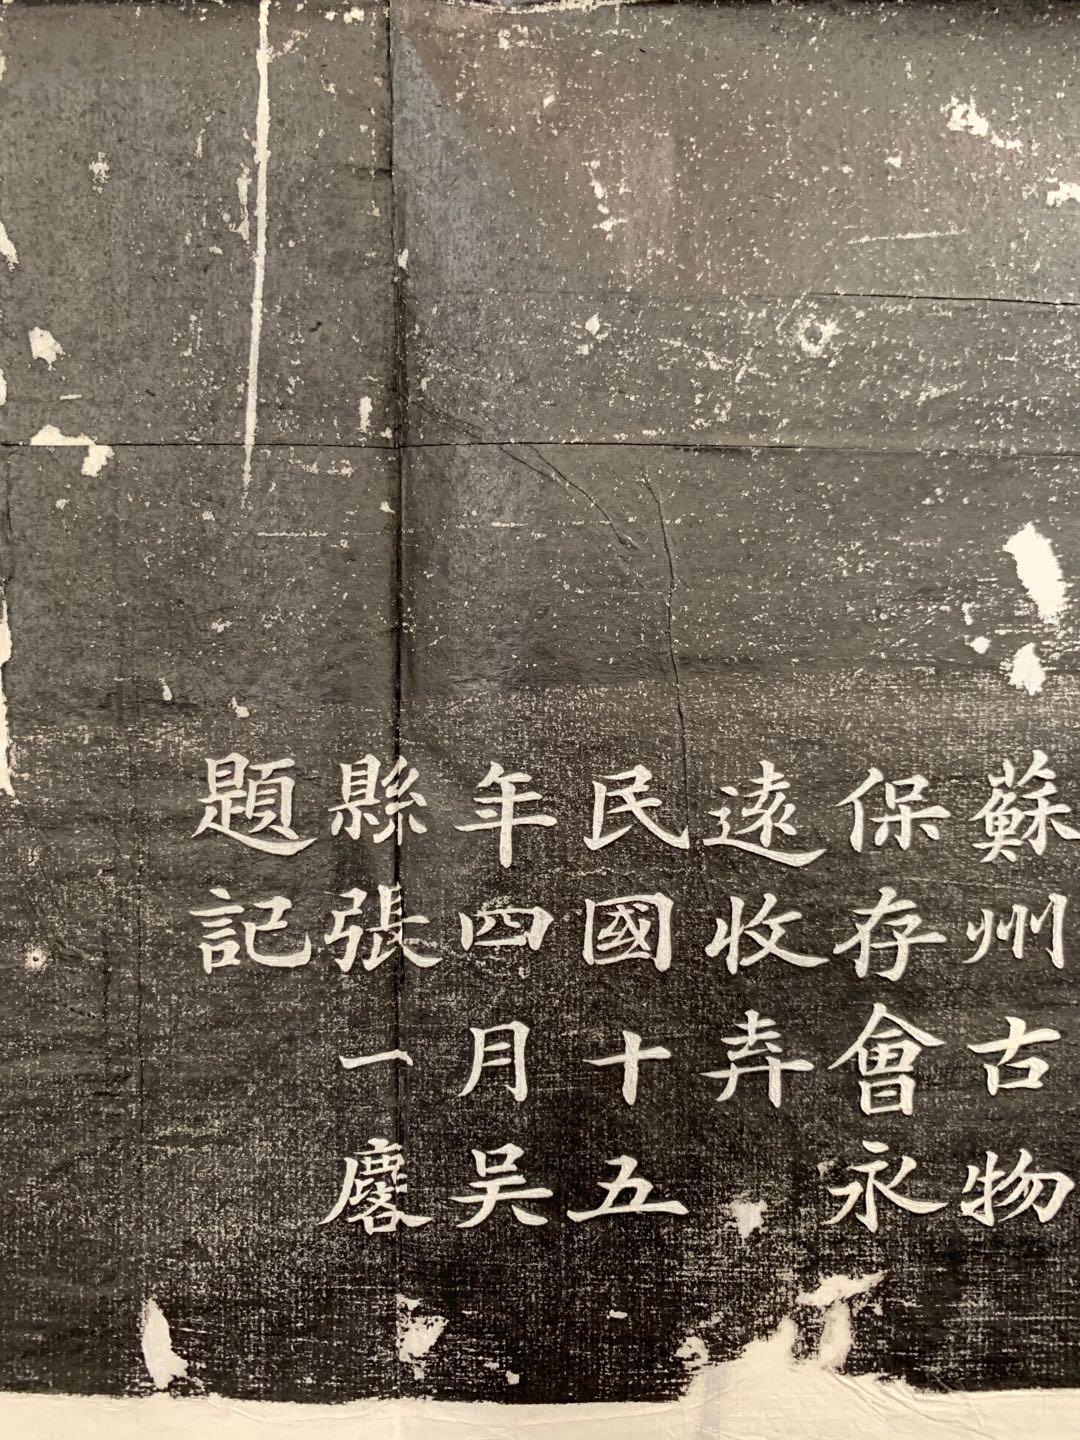 蘇州古物
保存會永
遠收弆
民國十五
年四月吳
縣張一麐
題記